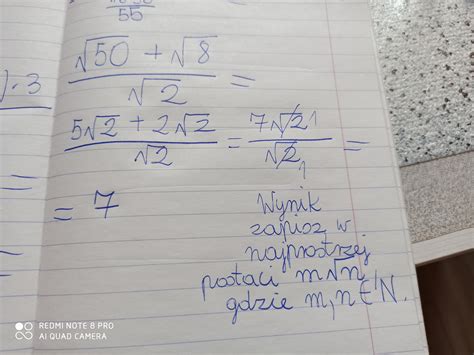 55
) · 3
√50 + √8 / √2 =
5√2 + 2√2 / √2 = 7√2 1 / √2 1 =
=
= 7
Wynik
zapisz w
najprostrzej
postaci m√n
gdzie m, n ∈ N.
REDMI NOTE 8 PRO
AI QUAD CAMERA